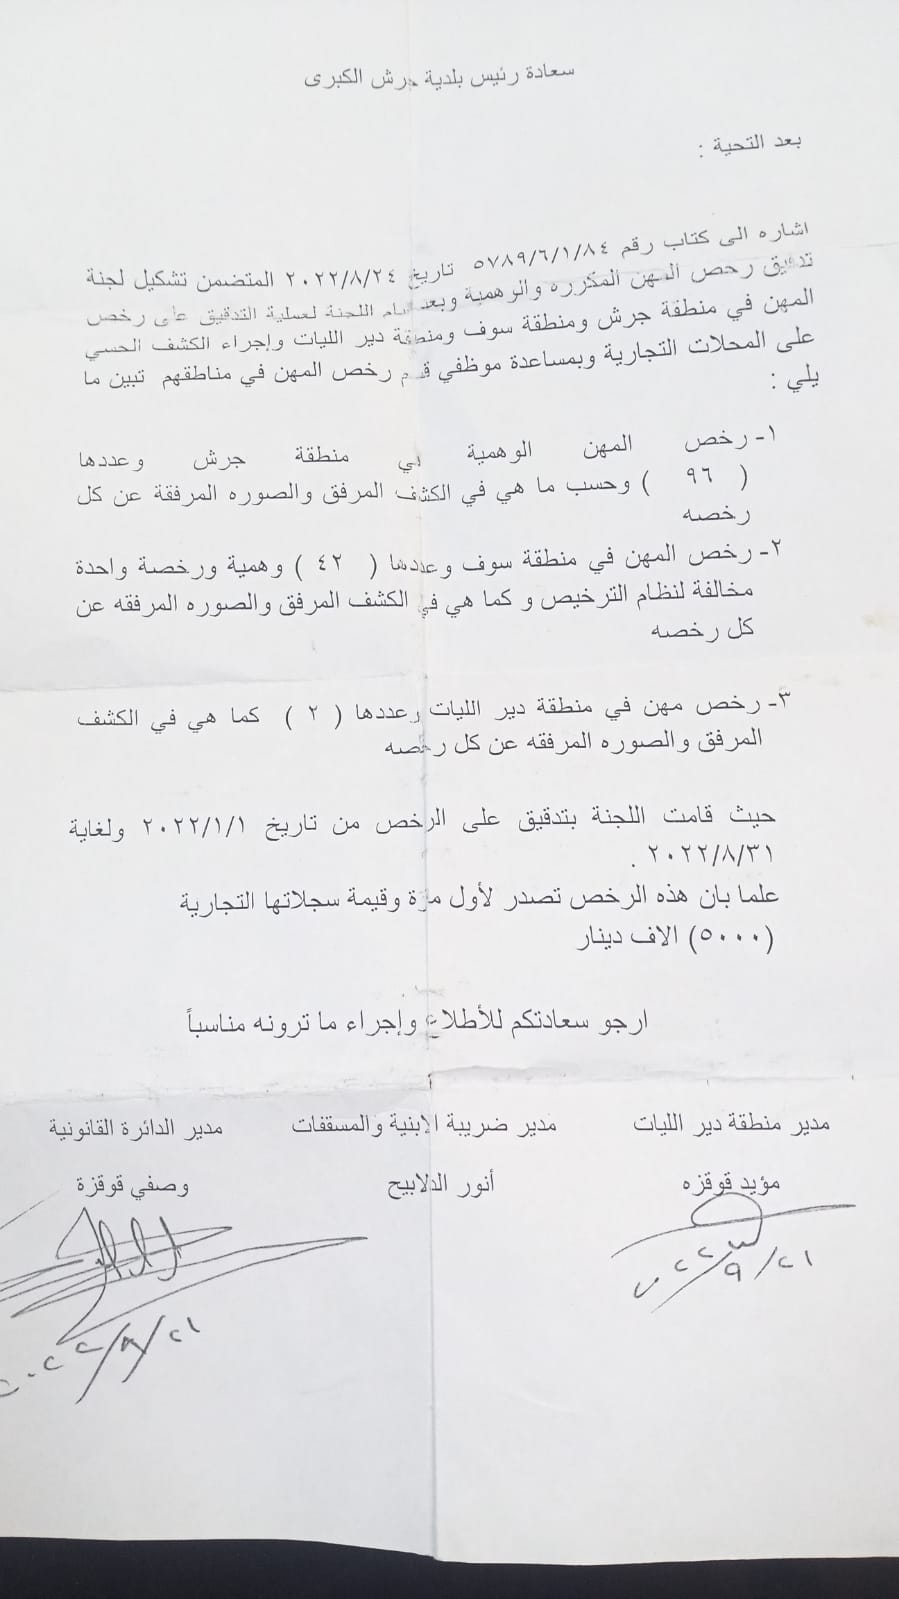 سعادة رئيس بلدية جرش الكبرى
بعد التحية :
اشاره الى كتاب رقم ٥٧٨٩/٦/١/٨٤ تاريخ ٢٠٢٢/٨/٢٤ المتضمن تشكيل لجنة
تدقيق رخص المهن المكرره والوهمية وبعد قيام اللجنة لعملية التدقيق على رخص
المهن في منطقة جرش ومنطقة سوف ومنطقة دير الليات وإجراء الكشف الحسي
على المحلات التجارية وبمساعدة موظفي قسم رخص المهن في مناطقهم تبين ما
يلي :
١- رخص المهن الوهمية في منطقة جرش وعددها
( ٩٦ ) وحسب ما هي في الكشف المرفق والصوره المرفقة عن كل
رخصه
٢- رخص المهن في منطقة سوف وعددها ( ٤٢ ) وهمية ورخصة واحدة
مخالفة لنظام الترخيص و كما هي في الكشف المرفق والصوره المرفقه عن
كل رخصه
٣- رخص مهن في منطقة دير الليات وعددها ( ٢ ) كما هي في الكشف
المرفق والصوره المرفقه عن كل رخصه
حيث قامت اللجنة بتدقيق على الرخص من تاريخ ٢٠٢٢/١/١ ولغاية
٢٠٢٢/٨/٣١ .
علما بان هذه الرخص تصدر لأول مرة وقيمة سجلاتها التجارية
(٥٠٠٠) الاف دينار
ارجو سعادتكم للأطلاع وإجراء ما ترونه مناسباً
مدير منطقة دير الليات مدير ضريبة الابنية والمسقفات مدير الدائرة القانونية
مؤيد قوقزه أنور الدلابيح وصفي قوقزة
٢٠٢٢/٩/٢١